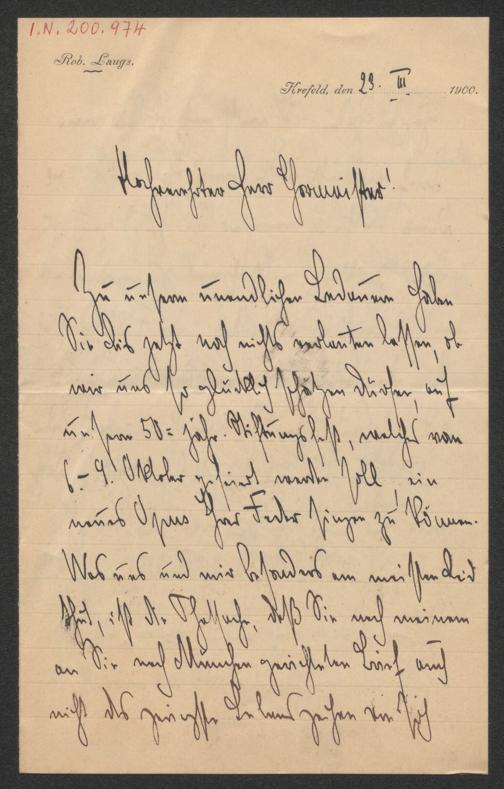 I.N. 200.974
Rob. Laugs.
Krefeld, den 23. III 1900.
Hochverehrter Herr Chormeister!
Zu unserm unendlichen Bedauern haben
Sie bis jetzt noch nichts verlauten lassen, ob
wir uns so glücklich schätzen dürfen, auf
unserm 50= jähr. Stiftungsfest, welches vom
6.–9. Oktober gefeiert werden soll, ein
neues Opus Ihrer Feder singen zu können.
Was uns und mir besonders am meisten Leid
thut, ist die Thatsache, daß Sie nach meinem
an Sie nach München gerichteten Brief auch
nicht das geringste Lebenszeichen von sich